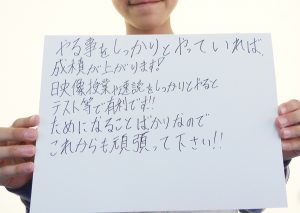 やる事をしっかりとやっていれば、
成績が上がります!
映像授業や速読をしっかりとやると
テスト等で有利です!!
ためになることばかりなので
これからも頑張って下さい!!